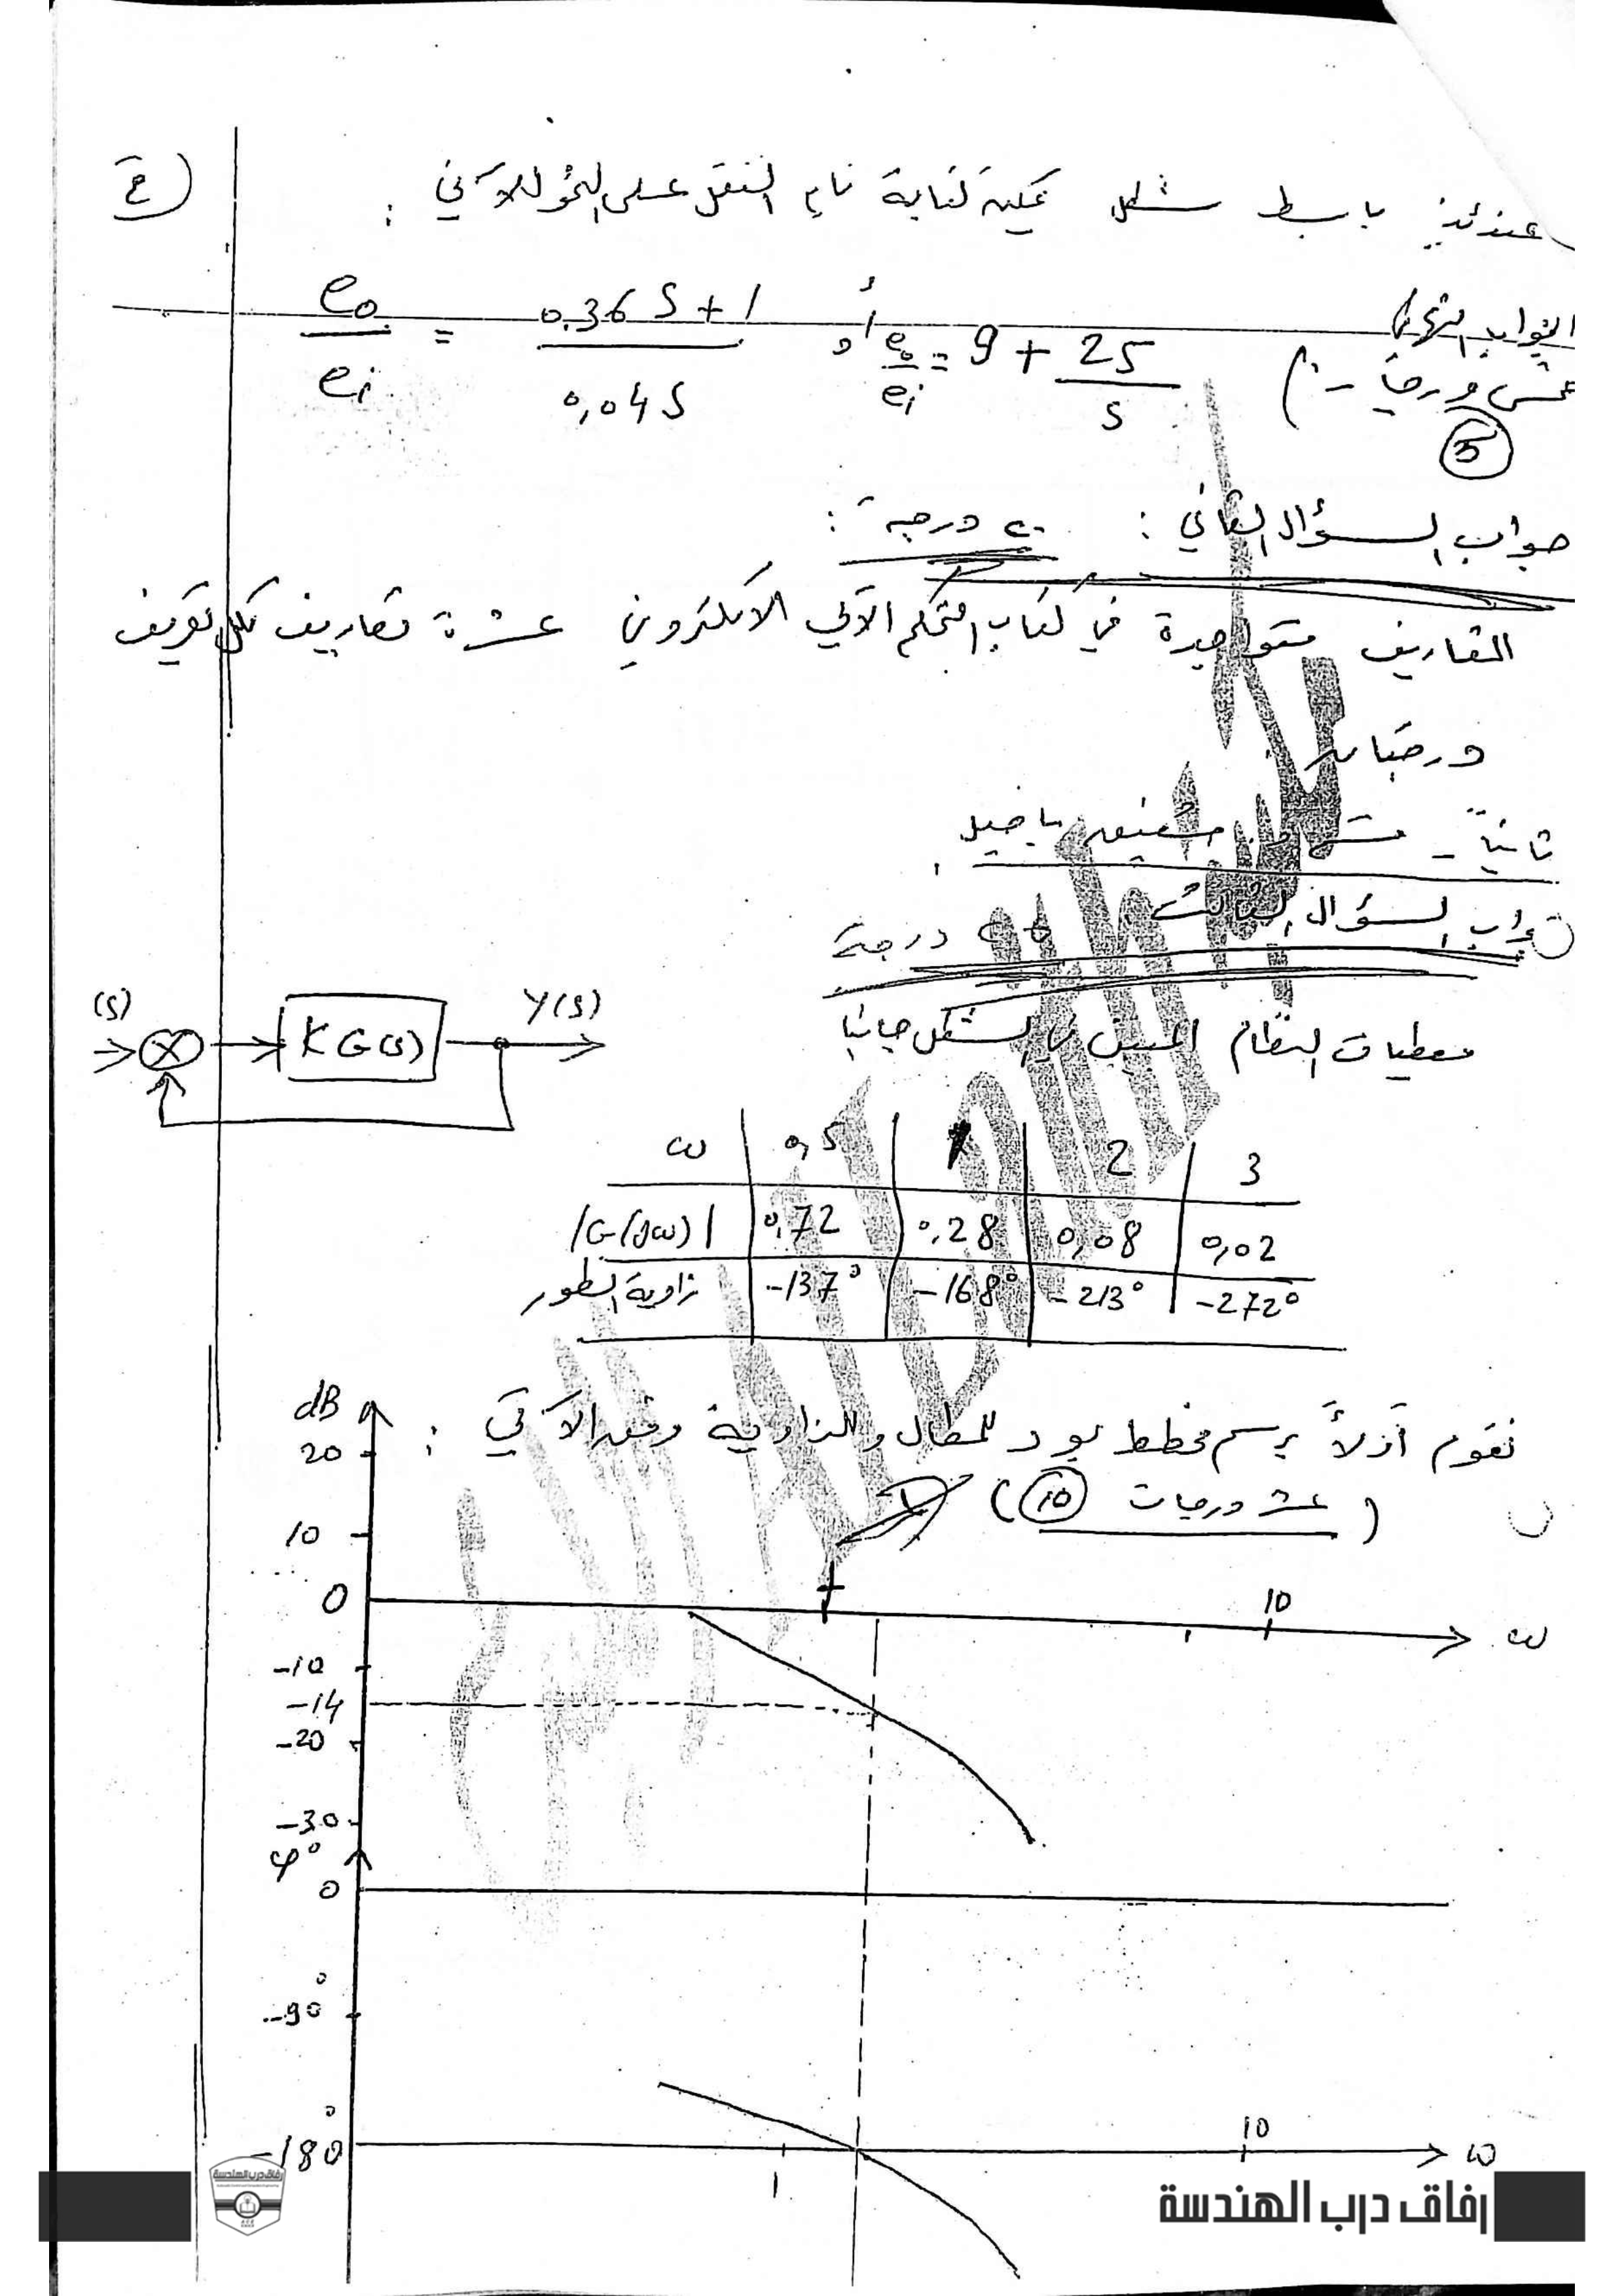 عندئذٍ بابسط شكل يمكن كتابة تابع النقل على النحو الآتي :
e₀/eᵢ = (0.36 S + 1)/(0,04 S) أو e₀/eᵢ = 9 + 25/S
(خمس درجات)
5
جواب السؤال الثاني : ٢٠ درجة :
التعاريف متواجدة في كتاب التحكم الآلي الالكتروني عشرة تعاريف لكل تعريف
درجتان
ثانياً -
جواب السؤال الثالث ٢٥ درجة
معطيات النظام المبين في الشكل جانباً
(S) K G(s) Y(s)
ω 0,5 1 2 3
|G(jω)| 0,72 0,28 0,08 0,02
زاوية الطور -137° -168° -213° -272°
نقوم أولاً برسم مخطط بود للمطال والزاوية وفق الآتي :
(عشر درجات 10)
dB
20
10
0 1 10 ω
-10
-14
-20
-30
φ°
0
-90°
-180° 1 10 ω
رفاق درب الهندسة